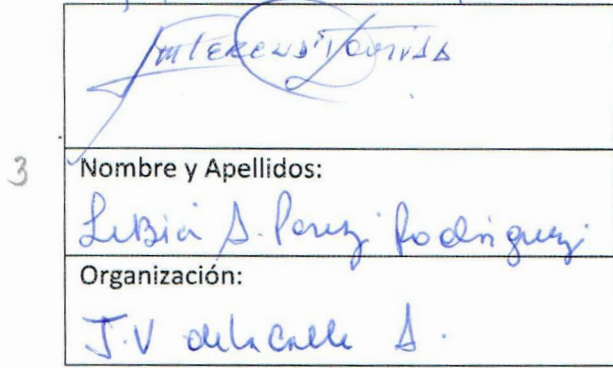 3
Nombre y Apellidos:
LeBiá A. Perez Rodriguez
Organización:
J.V de la Calle A.